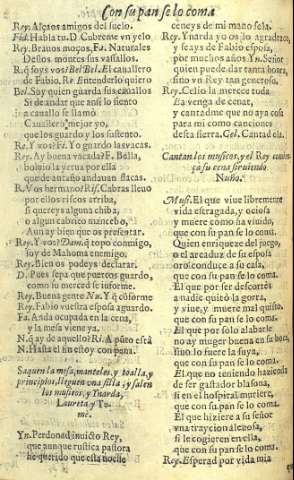 Con su pan se lo coma
Rey. Alçaos amigos del suelo.
Fid. Habla tu. D. Cubreme vn yelo
Rey. Brauos moços, Fa. Naturales
Destos montes sus vassallos.
Rey. q̃ soys vos? Bel. Bel. El cauallero
de Fabio. Re. Entenderlo quiero
Bel. Soy quien guarda sus cauallos
Si de andar que ansi lo siento
a cauallo se llamô
Cauallero, mejor yo,
que los guardo y los sustento.
Re. Y vos? Fa. Yo guardo las vacas.
Rey. Ay buena vacada? F. Bella,
boluio la yerua por ella
que de antaño andauan flacas.
R. Vos hermano? Ris. Cabras lleuo
por ellos riscos arriba,
si quereys alguna chiba,
o algun cabrito nuinebo,
Aun ay bien que os presentar.
Rey. Y vos? Dam. q̃ topo conmigo,
soy de Mahoma enemigo.
Rey. Bien os podeys declarar.
D. Pues sepa que puercos guardo,
como su merced se informe.
Rey. Buena gente Na. Y q̃ cõforme
Rey. Fabio vuestra esposa aguardo.
Fa. Anda ocupada en la cena,
y la mesa viene ya.
N. q̃ ay de aquello? Ri. A puto està
N. Hasta el fin estoy con pena.
Saquen la mesa, manteles, y toalla, y
principios, lleguen vna silla, y salen
los musicos, y Ynarda,
Laureta y To-
me.
Yn. Perdonad inuicto Rey,
que aunque rustica pastora
he querido que esta noche
ceneys de mi mano sela.
Rey. Ynarda yo os lo agradezco,
y seays de Fabio esposa,
por muchos años. Yn. Señor
quien puede dar tanta honra,
sino vn Rey tan generoso.
Rey. Celio la merece toda
Ea venga de cenar,
y cantadme que no aya cosa
para mi como canciones
desta sierra. Gel. Cantad ola.
Cantan los musicos, y el Rey comiẽ-
ça su cena siruiendo
Nuño.
Mus. El que viue libremente
vida estragada, y ociosa
y muere como ha viuido,
que con su pan se lo coma.
Quien enriquece del juego,
o el arcaduz de su esposa
oro conduce a su casa,
que con su pan se lo coma.
El que por ser descortes
a nadie quitò la gorra,
y viue, y muere mal quisto,
que con su pan se lo coma.
El que por solo alabarle
no ay muger buena en su boca,
sino lo fuere la suya,
que con su pan se lo coma.
El que no teniendo hazienda
de ser gastador blasona,
si en el hospital muriere,
que con su pan se lo coma.
El que hiziere a su señor
vna traycion aleuosa,
si le cogieren en ella,
que con su pan se lo coma.
Rey. Esperad por vida mia